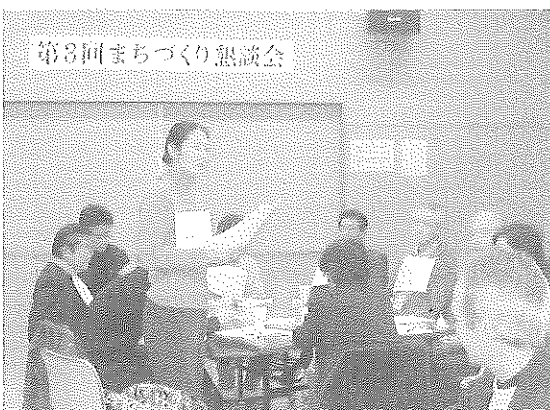 第3回まちづくり懇談会